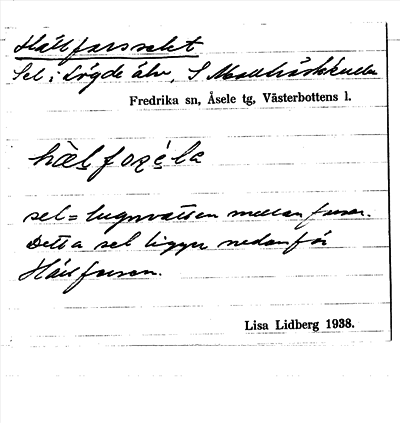 Hällforsselet
Sel i Lögde älv, S
Fredrika sn, Åsele tg, Västerbottens l.
sel = lugnvatten mellan forsar.
Detta sel ligger nedanför
Hällforsen.
Lisa Lidberg 1938.